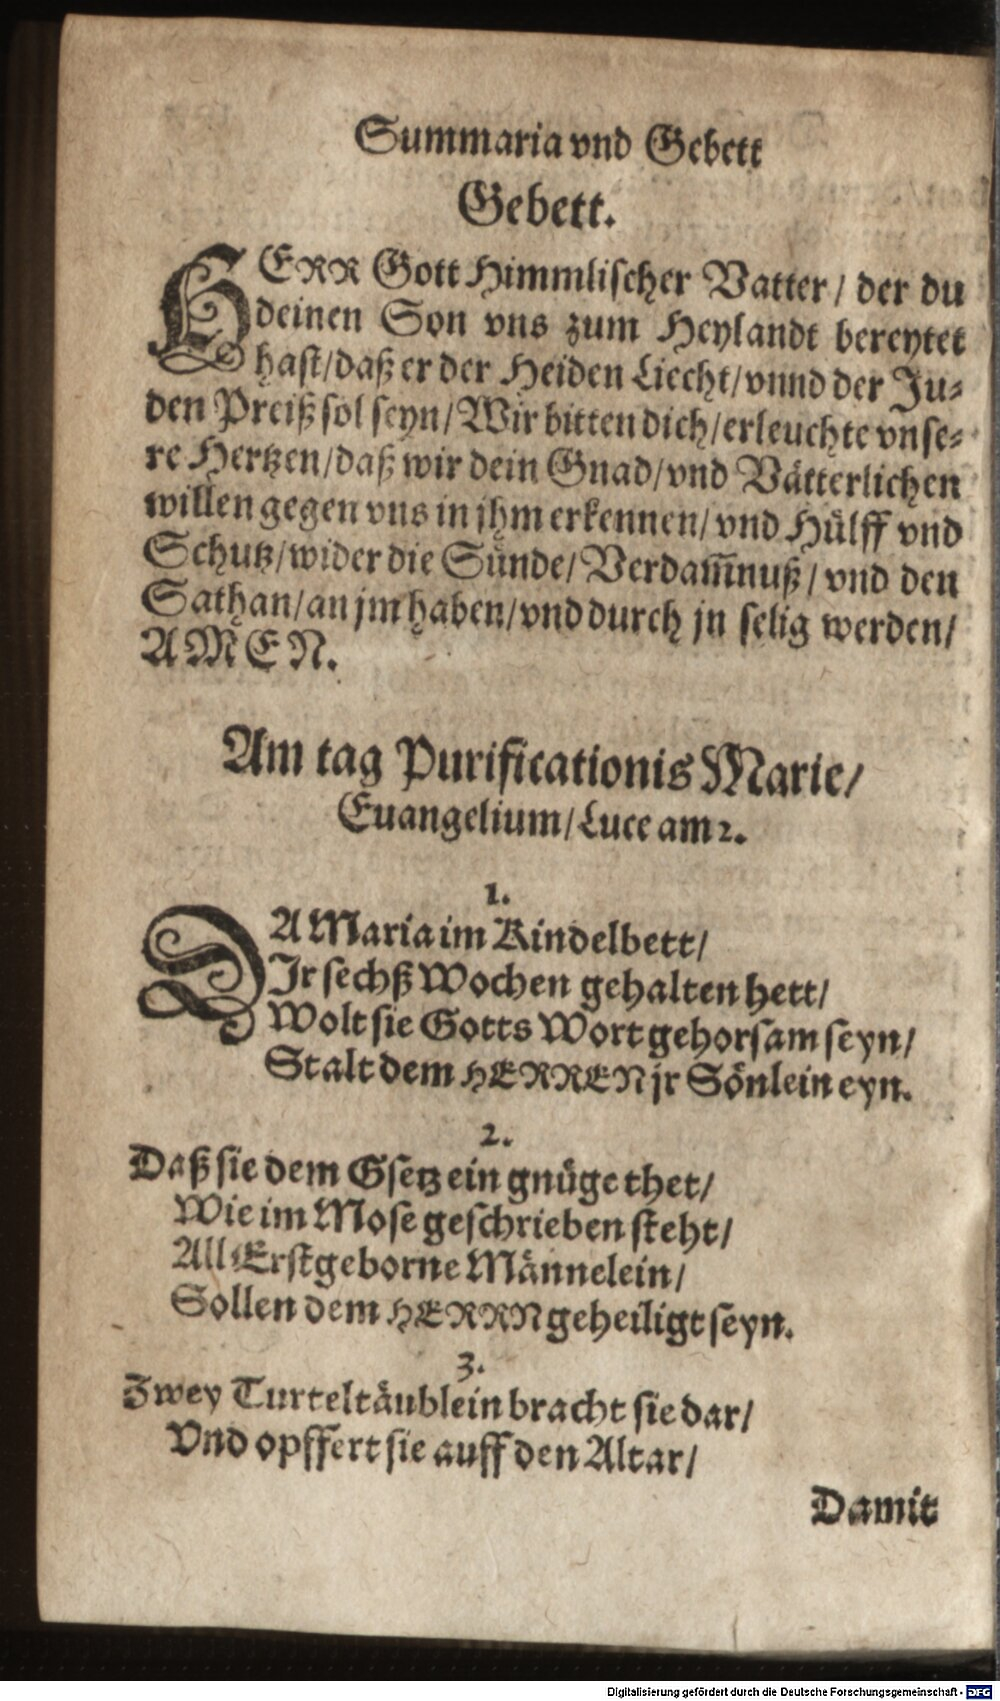 Summaria vnd Gebett
Gebett.
HERR Gott Himmlischer Vatter / der du
deinen Son vns zum Heylandt bereytet
hast / daß er der Heiden Liecht / vnnd der Ju⸗
den Preiß sol seyn / Wir bitten dich / erleuchte vnse⸗
re Hertzen / daß wir dein Gnad / vnd Vätterlichen
willen gegen vns in jhm erkennen / vnd Hülff vnd
Schutz / wider die Sünde / Verdam̅nuß / vnd den
Sathan / an jm haben / vnd durch jn selig werden /
AMEN.
Am tag Purificationis Marie /
Euangelium / Luce am 2.
1.
DA Maria im Kindelbett /
Ir sechß Wochen gehalten hett /
Wolt sie Gotts Wort gehorsam seyn /
Stalt dem HERREN jr Sönlein eyn.
2.
Daß sie dem Gsetz ein gnüge thet /
Wie im Mose geschrieben steht /
All Erstgeborne Männelein /
Sollen dem HERRN geheiligt seyn.
3.
Zwey Turteltäublein bracht sie dar /
Vnd opffert sie auff den Altar /
Damit
Digitalisierung gefördert durch die Deutsche Forschungsgemeinschaft - DFG